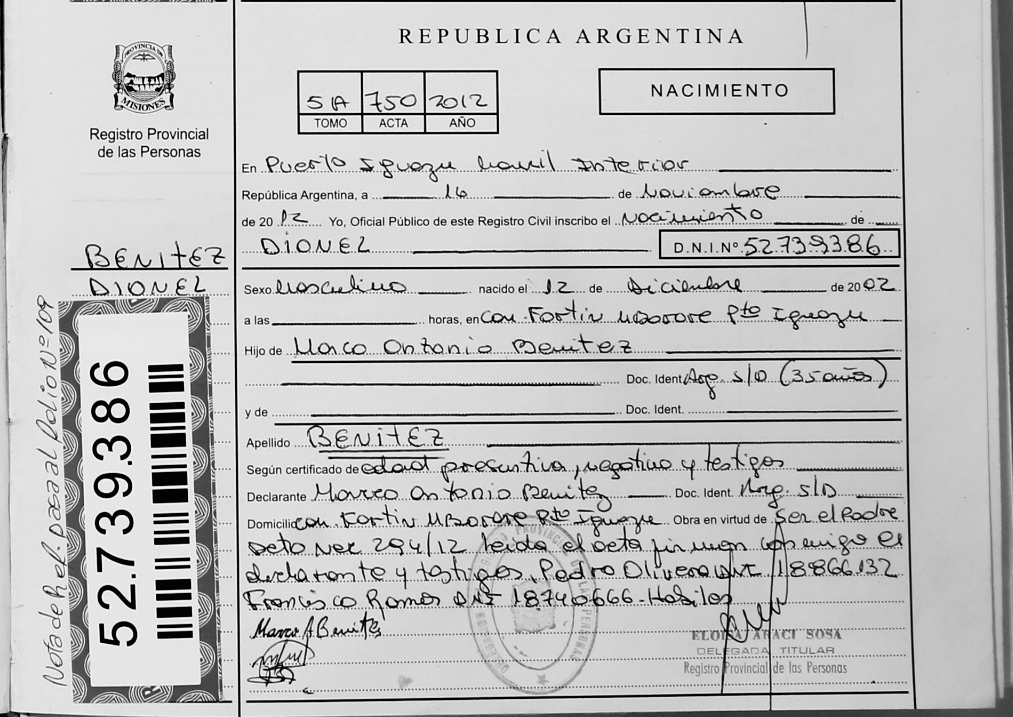 REPUBLICA ARGENTINA
PROVINCIA
MISIONES
Registro Provincial
de las Personas
5A 750 2012
TOMO ACTA AÑO
NACIMIENTO
En Puerto Iguazu Interior
República Argentina, a 16 de Noviembre
de 2012 Yo, Oficial Público de este Registro Civil inscribo el Nacimiento de
DIONEL D.N.I.Nº 52.739.386
BENITEZ
DIONEL
Sexo Masculino nacido el 12 de Diciembre de 2002
a las horas, en Com. Fortin Mborore Pto Iguazu
Hijo de Marco Antonio Benitez
Doc. Ident. Arg. S/D (35 años)
y de Doc. Ident.
Apellido BENITEZ
Según certificado de edad presuntiva, negativo y testigos
Declarante Marco Antonio Benitez Doc. Ident. Arg. S/D
Domicilio com. Fortin Mborore Pto Iguazu Obra en virtud de Ser el Padre
Dcto Nac 294/12 leida el acta firman conmigo el
declarante y testigos, Pedro Olivera DNI 18.866.132
Francisco Ramos DNI 18740666 - Habiles
Marco A Benites
ELOISA ARACI SOSA
DELEGADA TITULAR
Registro Provincial de las Personas
Nota de Ref. pasa al folio Nº 109
52.739.386